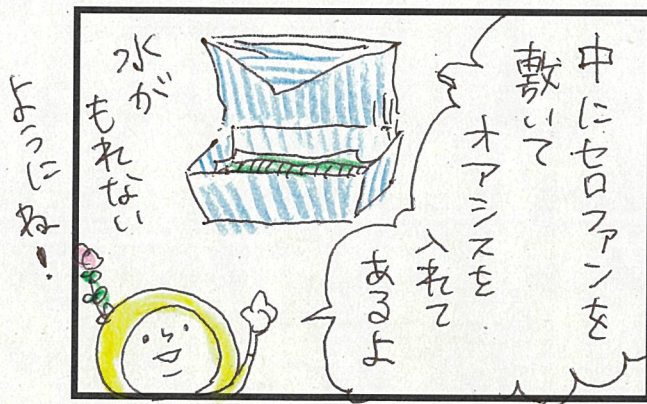 中にセロファンを
敷いて
オアシスを
入れて
あるよ
水が
もれない
ようにね！